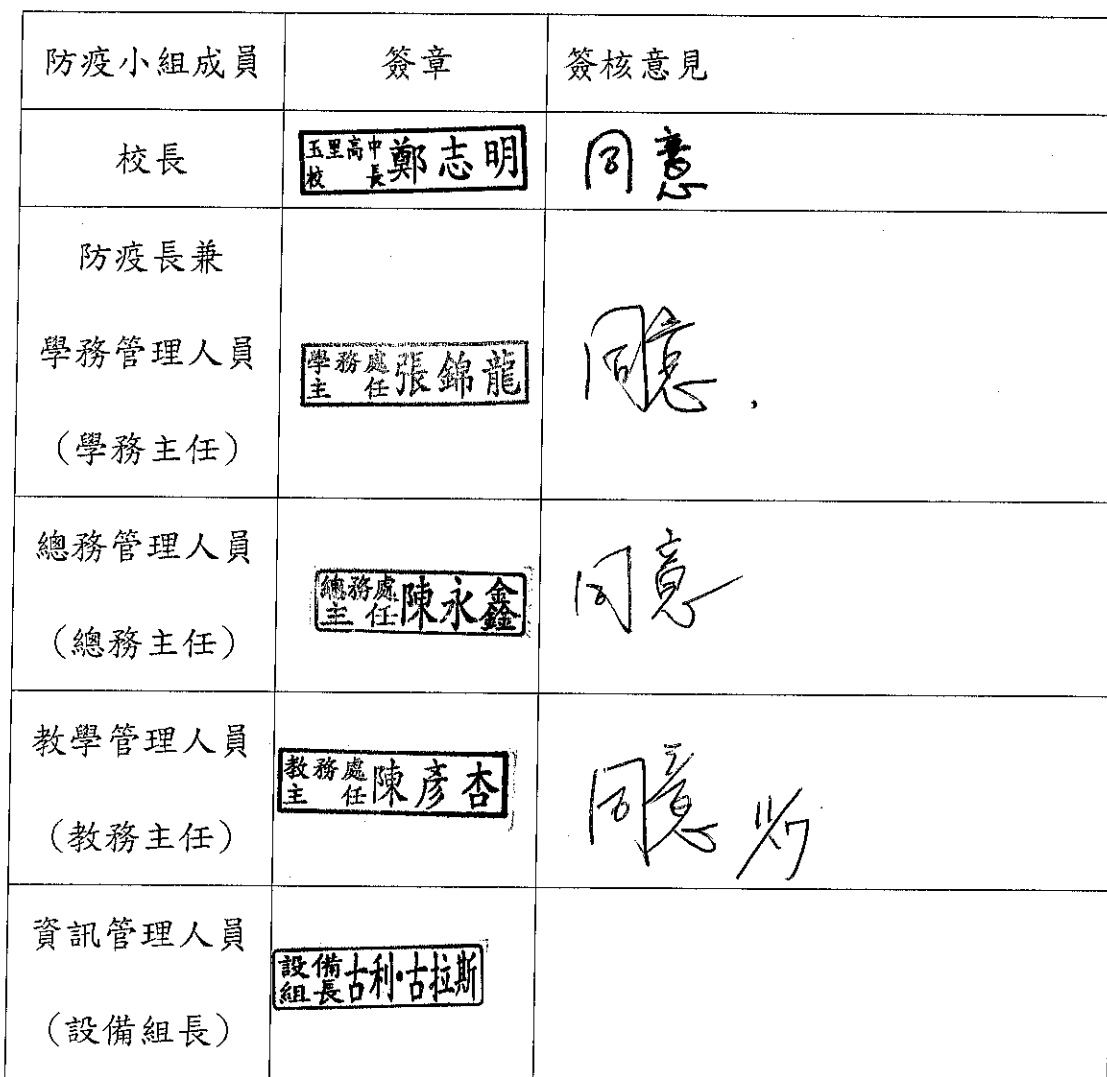 防疫小組成員 簽章 簽核意見
校長 玉里高中校長 鄭志明 同意
防疫長兼
學務管理人員
(學務主任)
學務處主任 張錦龍 同意.
總務管理人員
(總務主任)
總務處主任 陳永鑫 同意
教學管理人員
(教務主任)
教務處主任 陳彥杏 同意
資訊管理人員
(設備組長)
設備組長 古利·古拉斯